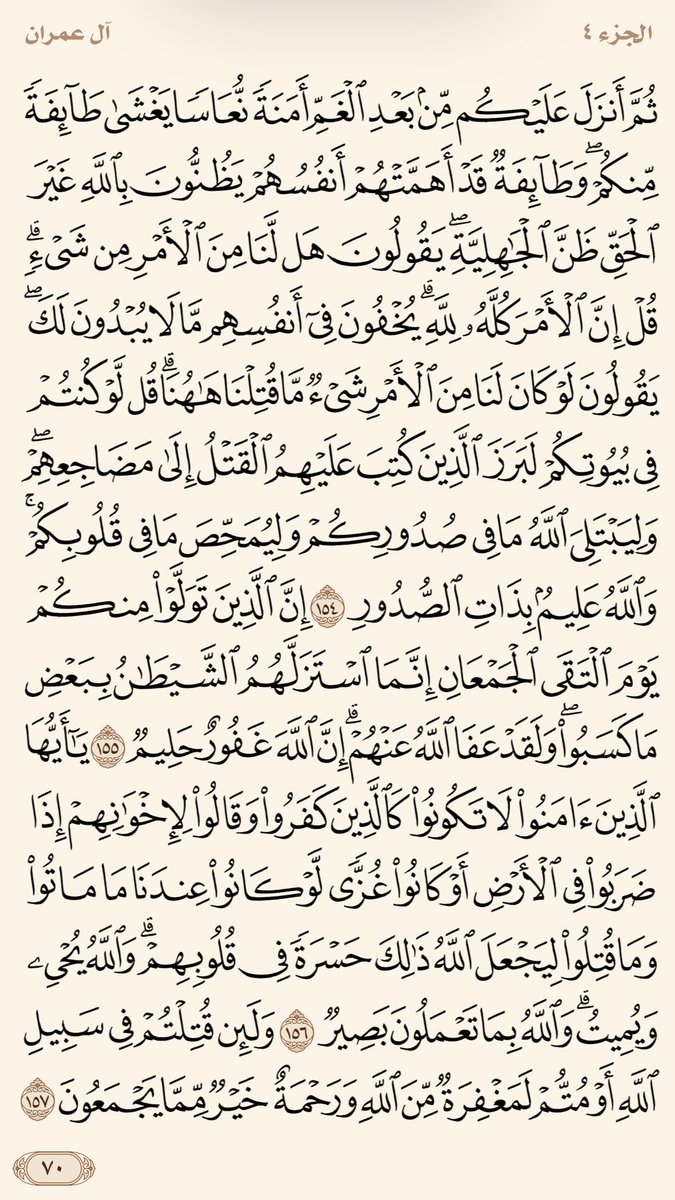 الجزء ٤
آل عمران
ثُمَّ أَنزَلَ عَلَيْكُم مِّنۢ بَعْدِ ٱلْغَمِّ أَمَنَةً نُّعَاسًا يَغْشَىٰ طَآئِفَةً
مِّنكُمْ ۖ وَطَآئِفَةٌ قَدْ أَهَمَّتْهُمْ أَنفُسُهُمْ يَظُنُّونَ بِٱللَّهِ غَيْرَ
ٱلْحَقِّ ظَنَّ ٱلْجَٰهِلِيَّةِ ۖ يَقُولُونَ هَل لَّنَا مِنَ ٱلْأَمْرِ مِن شَىْءٍ ۗ
قُلْ إِنَّ ٱلْأَمْرَ كُلَّهُۥ لِلَّهِ ۗ يُخْفُونَ فِىٓ أَنفُسِهِم مَّا لَا يُبْدُونَ لَكَ ۖ
يَقُولُونَ لَوْ كَانَ لَنَا مِنَ ٱلْأَمْرِ شَىْءٌ مَّا قُتِلْنَا هَٰهُنَا ۗ قُل لَّوْ كُنتُمْ
فِى بُيُوتِكُمْ لَبَرَزَ ٱلَّذِينَ كُتِبَ عَلَيْهِمُ ٱلْقَتْلُ إِلَىٰ مَضَاجِعِهِمْ ۖ
وَلِيَبْتَلِىَ ٱللَّهُ مَا فِى صُدُورِكُمْ وَلِيُمَحِّصَ مَا فِى قُلُوبِكُمْ ۚ
وَٱللَّهُ عَلِيمٌۢ بِذَاتِ ٱلصُّدُورِ ١٥٤ إِنَّ ٱلَّذِينَ تَوَلَّوْا۟ مِنكُمْ
يَوْمَ ٱلْتَقَى ٱلْجَمْعَانِ إِنَّمَا ٱسْتَزَلَّهُمُ ٱلشَّيْطَٰنُ بِبَعْضِ
مَا كَسَبُوا۟ ۖ وَلَقَدْ عَفَا ٱللَّهُ عَنْهُمْ ۗ إِنَّ ٱللَّهَ غَفُورٌ حَلِيمٌ ١٥٥ يَٰٓأَيُّهَا
ٱلَّذِينَ ءَامَنُوا۟ لَا تَكُونُوا۟ كَٱلَّذِينَ كَفَرُوا۟ وَقَالُوا۟ لِإِخْوَٰنِهِمْ إِذَا
ضَرَبُوا۟ فِى ٱلْأَرْضِ أَوْ كَانُوا۟ غُزًّى لَّوْ كَانُوا۟ عِندَنَا مَا مَاتُوا۟
وَمَا قُتِلُوا۟ لِيَجْعَلَ ٱللَّهُ ذَٰلِكَ حَسْرَةً فِى قُلُوبِهِمْ ۗ وَٱللَّهُ يُحْىِۦ
وَيُمِيتُ ۗ وَٱللَّهُ بِمَا تَعْمَلُونَ بَصِيرٌ ١٥٦ وَلَئِن قُتِلْتُمْ فِى سَبِيلِ
ٱللَّهِ أَوْ مُتُّمْ لَمَغْفِرَةٌ مِّنَ ٱللَّهِ وَرَحْمَةٌ خَيْرٌ مِّمَّا يَجْمَعُونَ ١٥٧
٧٠